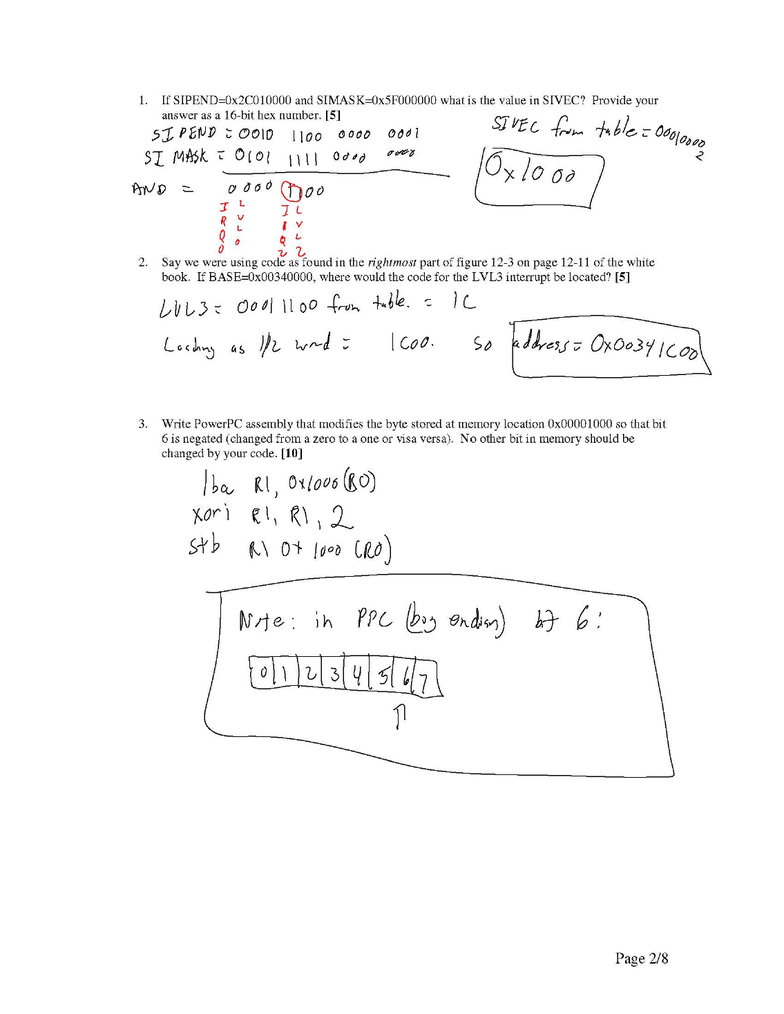 1. If SIPEND=0x2C010000 and SIMASK=0x5F000000 what is the value in SIVEC? Provide your
answer as a 16-bit hex number. [5]
SIPEND = 0010 1100 0000 0001
SIMASK = 0101 1111 0000 0000
AND = 0000 1100
SIVEC from table = 00010000
2
0x1000
I L I L
R V R V
Q L Q L
0 0 2 2
2. Say we were using code as found in the rightmost part of figure 12-3 on page 12-11 of the white
book. If BASE=0x00340000, where would the code for the LVL3 interrupt be located? [5]
LVL3 = 00011100 from table. = 1C
Loading as 1/2 word = 1C00. so address = 0x00341C00
3. Write PowerPC assembly that modifies the byte stored at memory location 0x00001000 so that bit
6 is negated (changed from a zero to a one or visa versa). No other bit in memory should be
changed by your code. [10]
lba R1, 0x1000(R0)
xori R1, R1, 2
stb R1 0x1000 (R0)
Note: in PPC (big endian) bit 6:
0 1 2 3 4 5 6 7
Page 2/8